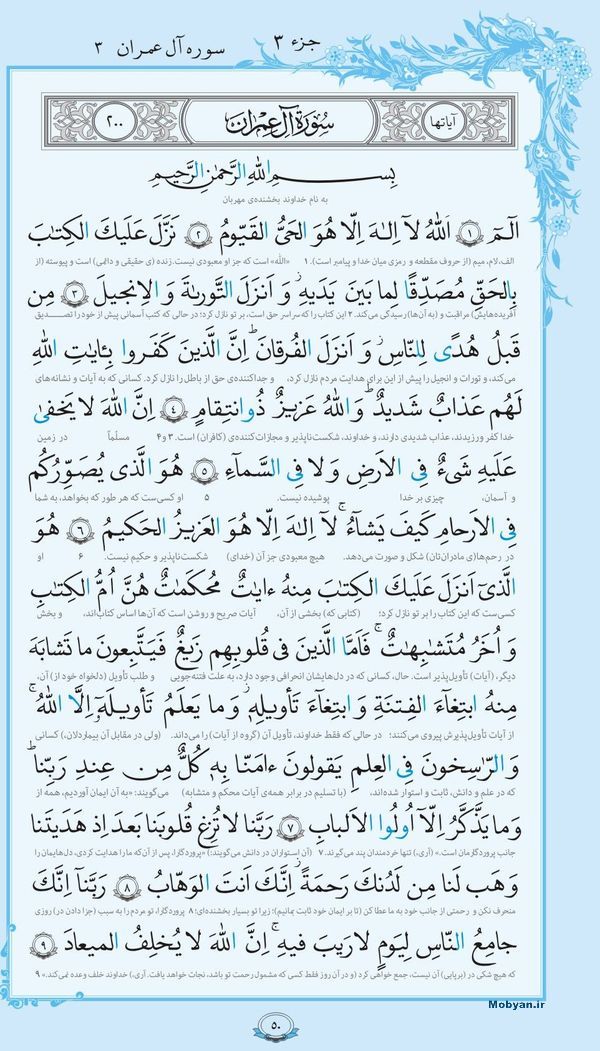 جزء ۳
سوره آل عمران ۳
آیاتها
سُورَةُ آلِ عِمران
۲۰۰
بِسمِ اللهِ الرَّحمٰنِ الرَّحیمِ
به نام خداوند بخشنده‌ی مهربان
الٓمٓ ﴿۱﴾ اَللهُ لآ اِلـٰهَ اِلّا هُوَ الحَیُّ القَیّومُ ﴿۲﴾ نَزَّلَ عَلَیكَ الكِتـٰبَ
الف، لام، میم (از حروف مقطعه و رمزی میان خدا و پیامبر است). ۱ «الله» است که جز او معبودی نیست. زنده (ی حقیقی و دائمی) است و پیوسته (از
بِالحَقِّ مُصَدِّقًا لِما بَینَ یَدَیهِ وَ اَنزَلَ التَّورىٰةَ وَ الاِنجیلَ ﴿۳﴾ مِن
آفریده‌هایش) مراقبت و (به آن‌ها) رسیدگی می‌کند. ۲ این کتاب را که سراسر حق است، بر تو نازل کرد؛ در حالی که کتب آسمانی پیش از خود را تصـــدیق
قَبلُ هُدًی لِلنّاسِ وَ اَنزَلَ الفُرقانَ ۗ اِنَّ الَّذینَ كَفَروا بِـٔایـٰتِ اللهِ
می‌کند، و تورات و انجیل را پیش از این برای هدایت مردم نازل کرد، و جداکننده‌ی حق از باطل را نازل کرد. کسانی که به آیات و نشانه‌های
لَهُم عَذابٌ شَدیدٌ ۗ وَ اللهُ عَزیزٌ ذُوانتِقامٍ ﴿۴﴾ اِنَّ اللهَ لا یَخفیٰ
خدا کفر ورزیدند، عذاب شدیدی دارند، و خداوند، شکست‌ناپذیر و مجازات‌کننده‌ی (کافران) است. ۳ و ۴ مسلّماً در زمین
عَلَیهِ شَیءٌ فِی الاَرضِ وَ لا فِی السَّمآءِ ﴿۵﴾ هُوَ الَّذی یُصَوِّرُكُم
و آسمان، چیزی بر خدا پوشیده نیست. ۵ او کسی‌ست که هر طور که بخواهد، به شما
فِی الاَرحامِ كَیفَ یَشآءُ ۚ لآ اِلـٰهَ اِلّا هُوَ العَزیزُ الحَكیمُ ﴿۶﴾ هُوَ
در رحم‌ها(ی مادران‌تان) شکل و صورت می‌دهد. هیچ معبودی جز آن (خدای) شکست‌ناپذیر و حکیم نیست. ۶ او
الَّذیٓ اَنزَلَ عَلَیكَ الكِتـٰبَ مِنهُ ءایـٰتٌ مُحكَمـٰتٌ هُنَّ اُمُّ الكِتـٰبِ
کسی‌ست که این کتاب را بر تو نازل کرد؛ (کتابی که) بخشی از آن، آیات صریح و روشن است که آن‌ها اساس کتاب‌اند، و بخش
وَ اُخَرُ مُتَشـٰبِهـٰتٌ ۚ فَاَمَّا الَّذینَ فی قُلوبِهِم زَیغٌ فَیَتَّبِعونَ ما تَشابَهَ
دیگر، (آیات) تأویل‌پذیر است. حال، کسانی که در دل‌هایشان انحرافی وجود دارد، به علت فتنه‌جویی و طلب تأویل (دلخواه خود از) آن،
مِنهُ ابتِغآءَ الفِتنَةِ وَ ابتِغآءَ تَأویلِه۪ ۗ وَ ما یَعلَمُ تَأویلَهٗٓ اِلَّا اللهُ ۚ
از آیات تأویل‌پذیرش پیروی می‌کنند؛ در حالی که فقط خداوند، تأویل آن (گروه از آیات) را می‌داند. (ولی در مقابل آن بیماردلان،) کسانی
وَ الرّٰسِخونَ فِی العِلمِ یَقولونَ ءامَنّا بِه۪ كُلٌّ مِن عِندِ رَبِّنا ۗ
که در علم و دانش، ثابت و استوار شده‌اند، (با تسلیم در برابر همه‌ی آیات محکم و متشابه) می‌گویند: «به آن ایمان آوردیم، همه از
وَ ما یَذَّكَّرُ اِلّآ اُولُوا الاَلبابِ ﴿۷﴾ رَبَّنا لا تُزِغ قُلوبَنا بَعدَ اِذ هَدَیتَنا
جانب پروردگارمان است.» (آری،) تنها خردمندان پند می‌گیرند. ۷ (آن استواران در دانش می‌گویند:) «پروردگارا، پس از آن‌که ما را هدایت کردی، دل‌هایمان را
وَ هَب لَنا مِن لَدُنكَ رَحمَةً ۚ اِنَّكَ اَنتَ الوَهّابُ ﴿۸﴾ رَبَّنآ اِنَّكَ
منحرف نکن و رحمتی از جانب خود به ما عطا کن (تا بر ایمان خود ثابت بمانیم)؛ زیرا تو بسیار بخشنده‌ای؛ ۸ پروردگارا، تو مردم را به سبب (جزا دادن در) روزی
جامِعُ النّاسِ لِیَومٍ لا رَیبَ فیهِ ۚ اِنَّ اللهَ لا یُخلِفُ المیعادَ ﴿۹﴾
که هیچ شکی در (برپایی) آن نیست، جمع خواهی کرد (و در آن روز فقط کسی که مشمول رحمت تو باشد، نجات خواهد یافت. آری،) خداوند خلف وعده نمی‌کند.» ۹
Mobyan.ir
۵۰